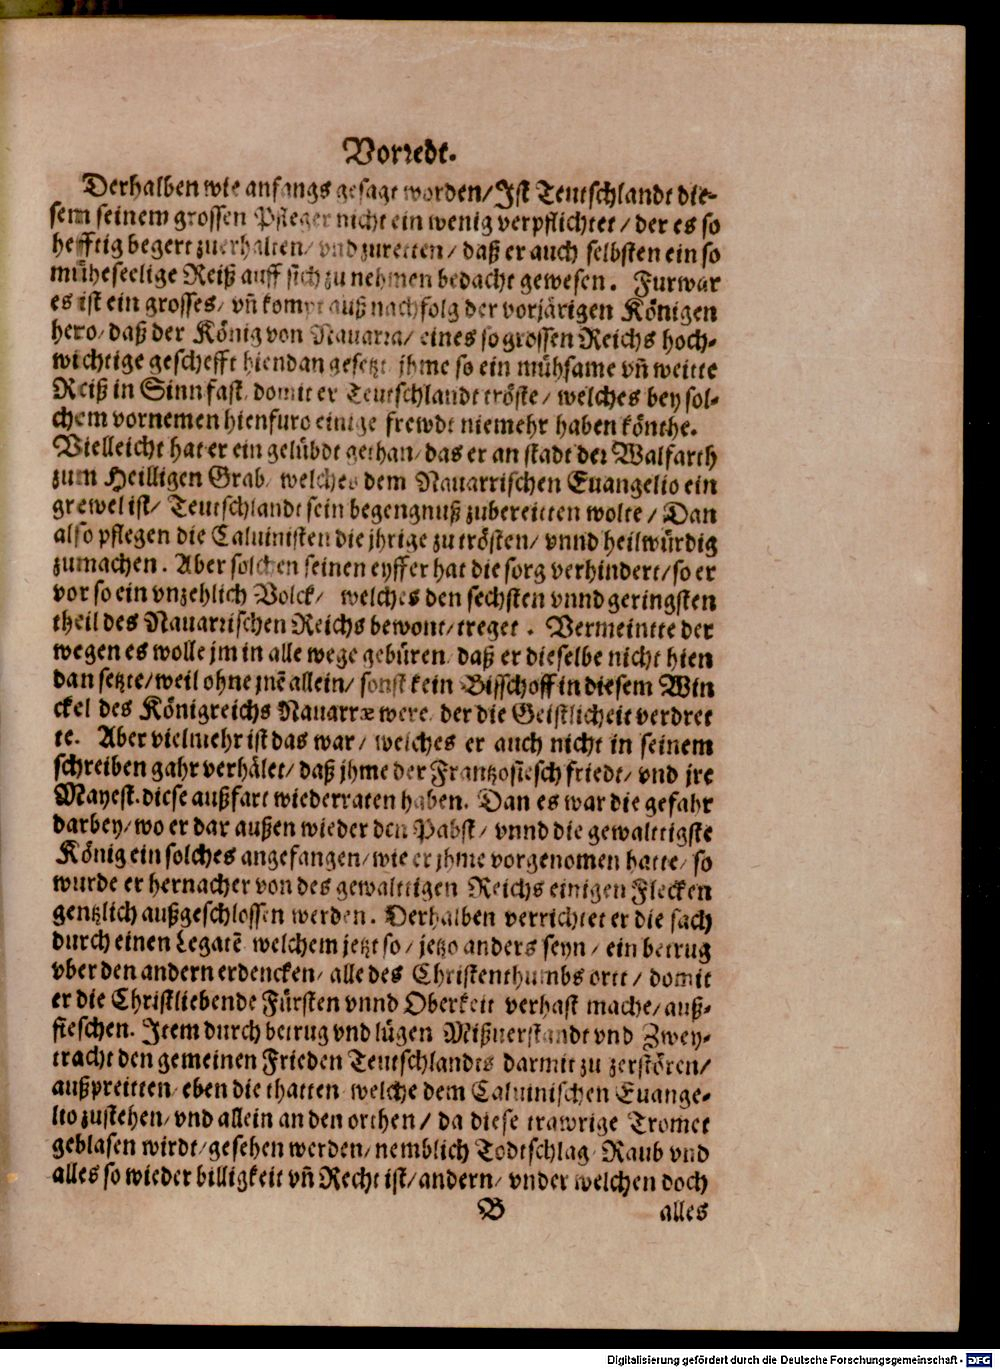 Vorrede.
Derhalben wie anfangs gesagt worden/ Ist Teutschlandt die-
sem seinem grossen Pfleger nicht ein wenig verpflichtet / der es so
hefftig begert zuerhalten/ vnd zuretten / daß er auch selbsten ein so
müheseelige Reiß auff sich zu nehmen bedacht gewesen. Furwar
es ist ein grosses/ vñ kompt auß nachfolg der vorjärigen Königen
hero/ daß der König von Nauarra/ eines so grossen Reichs hoch-
wichtige geschefft hiendan gesetzt jhme so ein mühsame vñ weitte
Reiß in Sinn fast/ domit er Teutschlandt tröste/ welches bey sol-
chem vornemen hienfuro einige frewdt niemehr haben könthe.
Vielleicht hat er ein gelübdt gethan/ das er an stadt der Walfarth
zum Heilligen Grab/ welches dem Nauarrischen Euangelio ein
grewel ist/ Teutschlandt sein begengnuß zubereitten wolte / Dan
also pflegen die Caluinisten die jhrige zu trösten/ vnnd heilwürdig
zumachen. Aber solchen seinen eyffer hat die sorg verhindert/ so er
vor so ein vnzehlich Volck/ welches den sechsten vnnd geringsten
theil des Nauarrischen Reichs bewont/ treget . Vermeintte der
wegen es wolle jm in alle wege gebüren/ daß er dieselbe nicht hien
dan setzte/ weil ohne jnē allein/ sonst kein Bisschoff in diesem Win
ckel des Königreichs Nauarræ were/ der die Geistlicheit verdret
te. Aber vielmehr ist das war/ welches er auch nicht in seinem
schreiben gahr verhälet/ daß jhme der Frantzosiesch friedt/ vnd jre
Mayest. diese außfart wiederraten haben. Dan es war die gefahr
darbey/ wo er dar außen wieder den Pabst/ vnnd die gewalttigste
König ein solches angefangen/ wie er jhme vorgenomen hatte/ so
wurde er hernacher von des gewalttigen Reichs einigen Flecken
gentzlich außgeschlossen werden. Derhalben verrichtet er die sach
durch einen Legatē welchem jetzt so / jetzo anders seyn / ein betrug
vber den andern erdencken/ alle des Christenthumbs ortt/ domit
er die Christliebende Fürsten vnnd Oberkeit verhast mache/ auß-
fieschen. Item durch betrug vnd lügen Mißuerstandt vnd Zwey-
tracht den gemeinen Frieden Teutschlandts darmit zu zerstören/
außpreitten/ eben die thatten welche dem Caluinischen Euange-
lio zustehen/ vnd allein an den orthen / da diese trawrige Tromet
geblasen wirdt/ gesehen werden/ nemblich Todtschlag/ Raub vnd
alles so wieder billigkeit vñ Recht ist/ andern/ vnder welchen doch
B alles
Digitalisierung gefördert durch die Deutsche Forschungsgemeinschaft - DFG